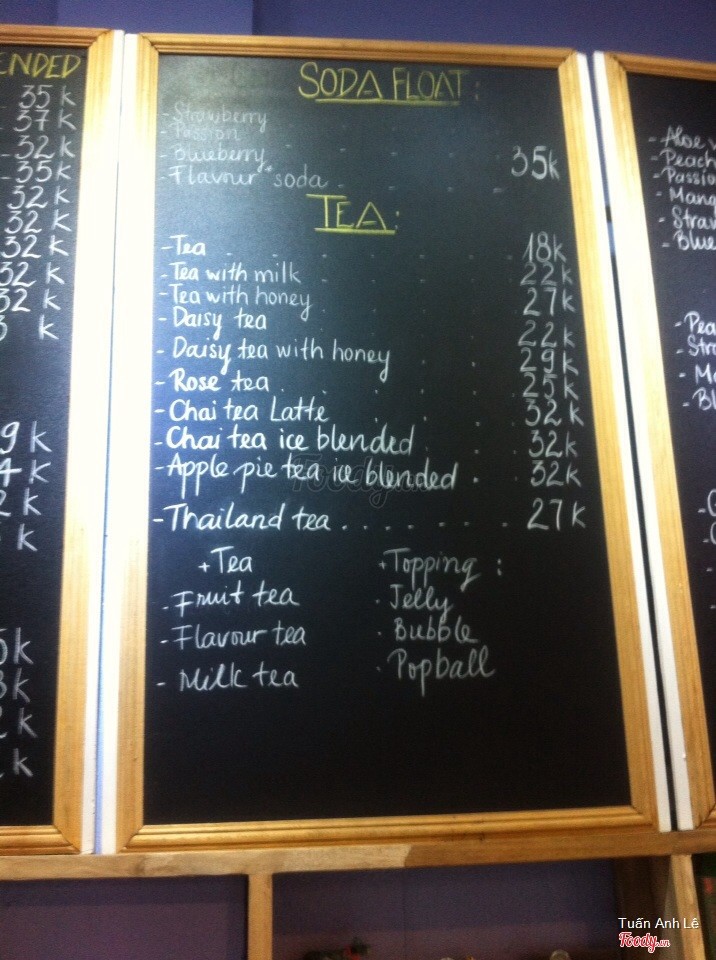 ENDED
35k
37k
32k
35k
32k
32k
32k
32k
32k
k
9k
4k
2k
k
k
k
k
k
SODA FLOAT:
-Strawberry
-Passion
-Blueberry
-Flavour soda 35k
TEA:
-Tea 18k
-Tea with milk 22k
-Tea with honey 27k
-Daisy tea 22k
-Daisy tea with honey 29k
-Rose tea 25k
-Chai tea Latte 32k
-Chai tea ice blended 32k
-Apple pie tea ice blended 32k
-Thailand tea 27k
+Tea +Topping:
-Fruit tea ·Jelly
-Flavour tea ·Bubble
-Milk tea ·Popball
-Aloe
-Peach
-Passio
-Mang
-Straw
-Blue
-Pea
-Str
-Ma
-Bl
Foody
Tuấn Anh Lê
Foody.vn